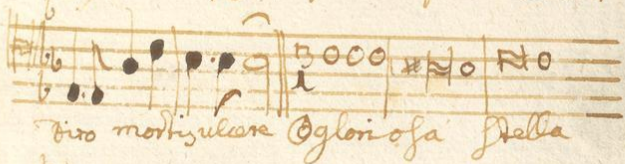 Diro mortis ulcere O gloriosa stella